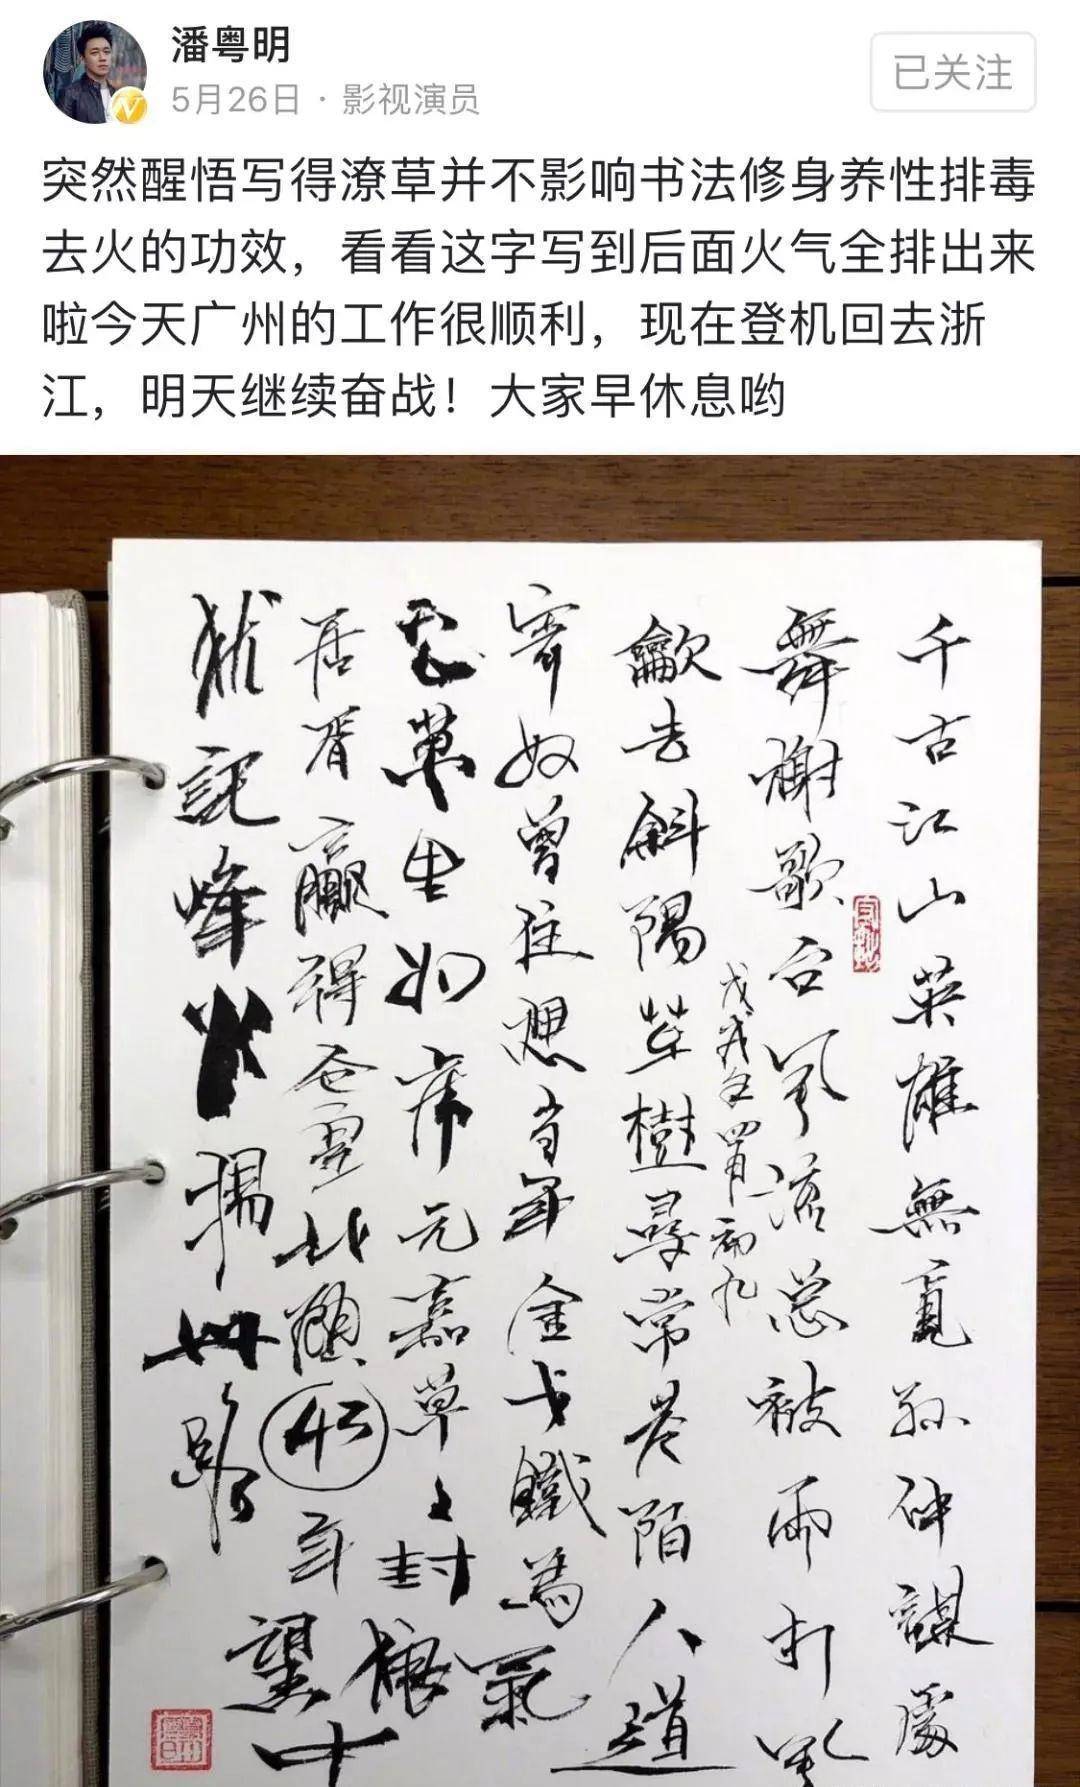 潘粤明
5月26日 · 影视演员
已关注
突然醒悟写得潦草并不影响书法修身养性排毒
去火的功效，看看这字写到后面火气全排出来
啦今天广州的工作很顺利，现在登机回去浙
江，明天继续奋战！大家早休息哟
千古江山英雄無覓孫仲謀處
舞榭歌台風流总被雨打風
戊戌年四月初九
歙去斜陽草樹尋常巷陌人道
寄奴曾住想當年金戈鐵為氣
萬里如虎元嘉草草封狼
居胥贏得仓皇北顧43年望中
犹記烽火揚州路